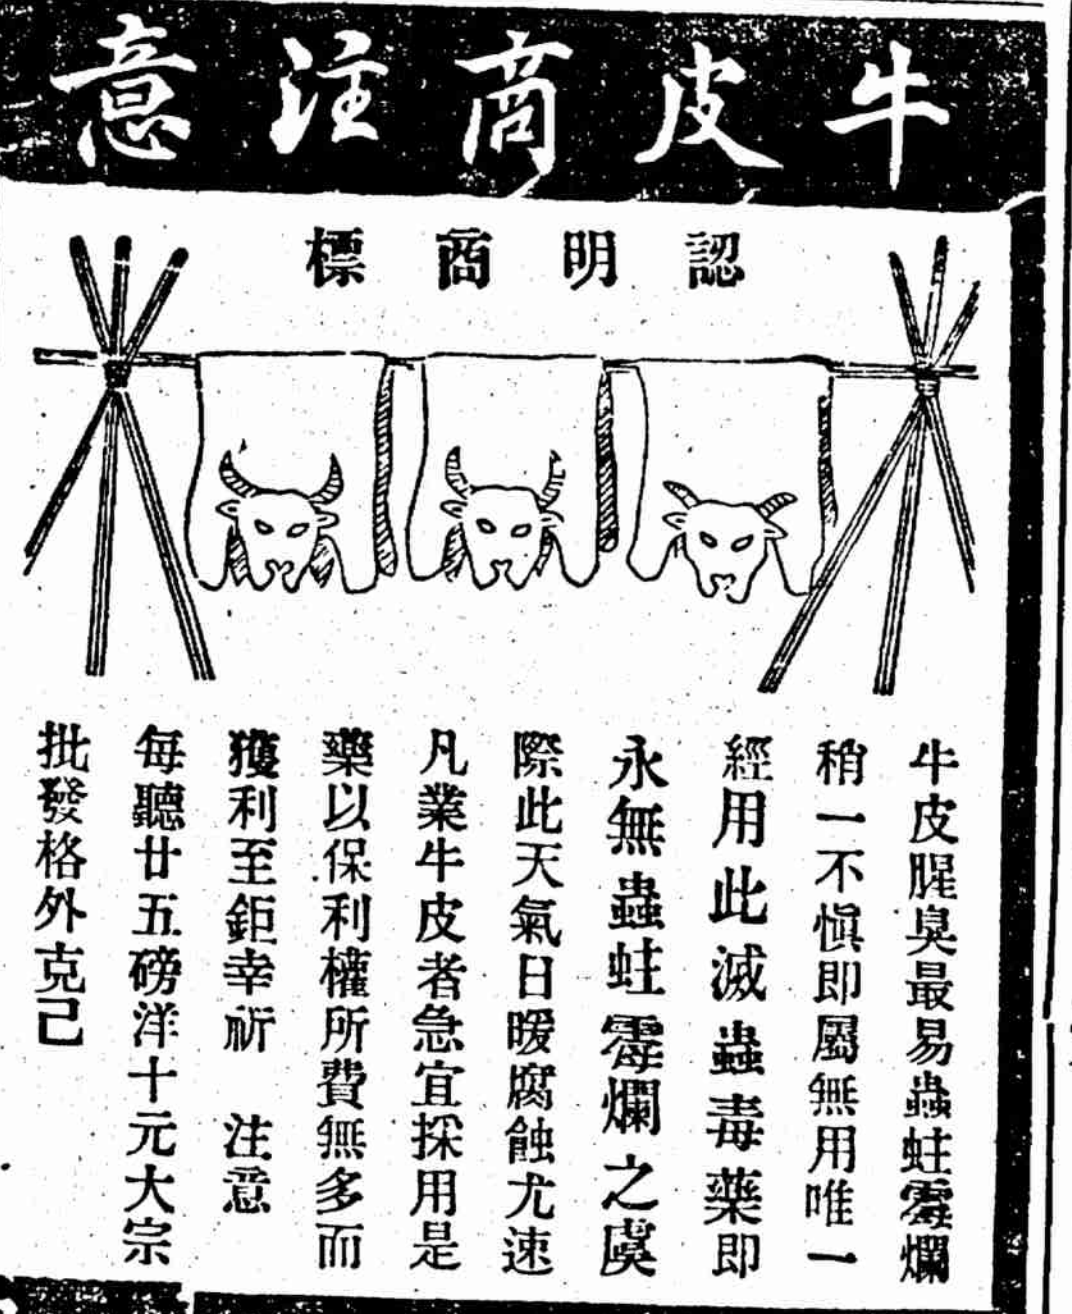 牛皮商注意
認明商標
牛皮腥臭最易蟲蛀霉爛
稍一不慎即屬無用唯一
經用此滅蟲毒藥即
永無蟲蛀霉爛之虞
際此天氣日暖腐蝕尤速
凡業牛皮者急宜採用是
藥以保利權所費無多而
獲利至鉅幸祈 注意
每聽廿五磅洋十元大宗
批發格外克己